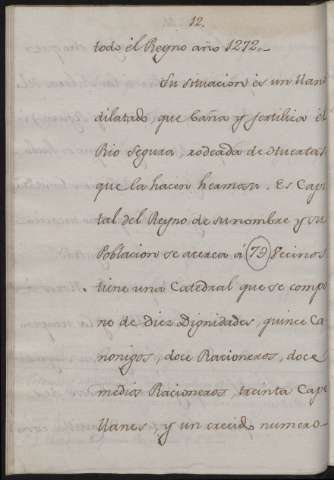 12.
todo el Reyno año 1272.
Su situacion es un llano
dilatado, que baña y fertiliza el
Rio Segura, rodeada de Huertas
que la hacen hermosa. Es Capi
tal del Reyno de su nombre y su
Poblacion se acerca á 79 Vecinos.
tiene una Catedral que se compo
ne de diez Dignidades, quince Ca
nonigos, doce Racioneros, doce
medios Racioneros, treinta Cape
llanes, y un crecido numero